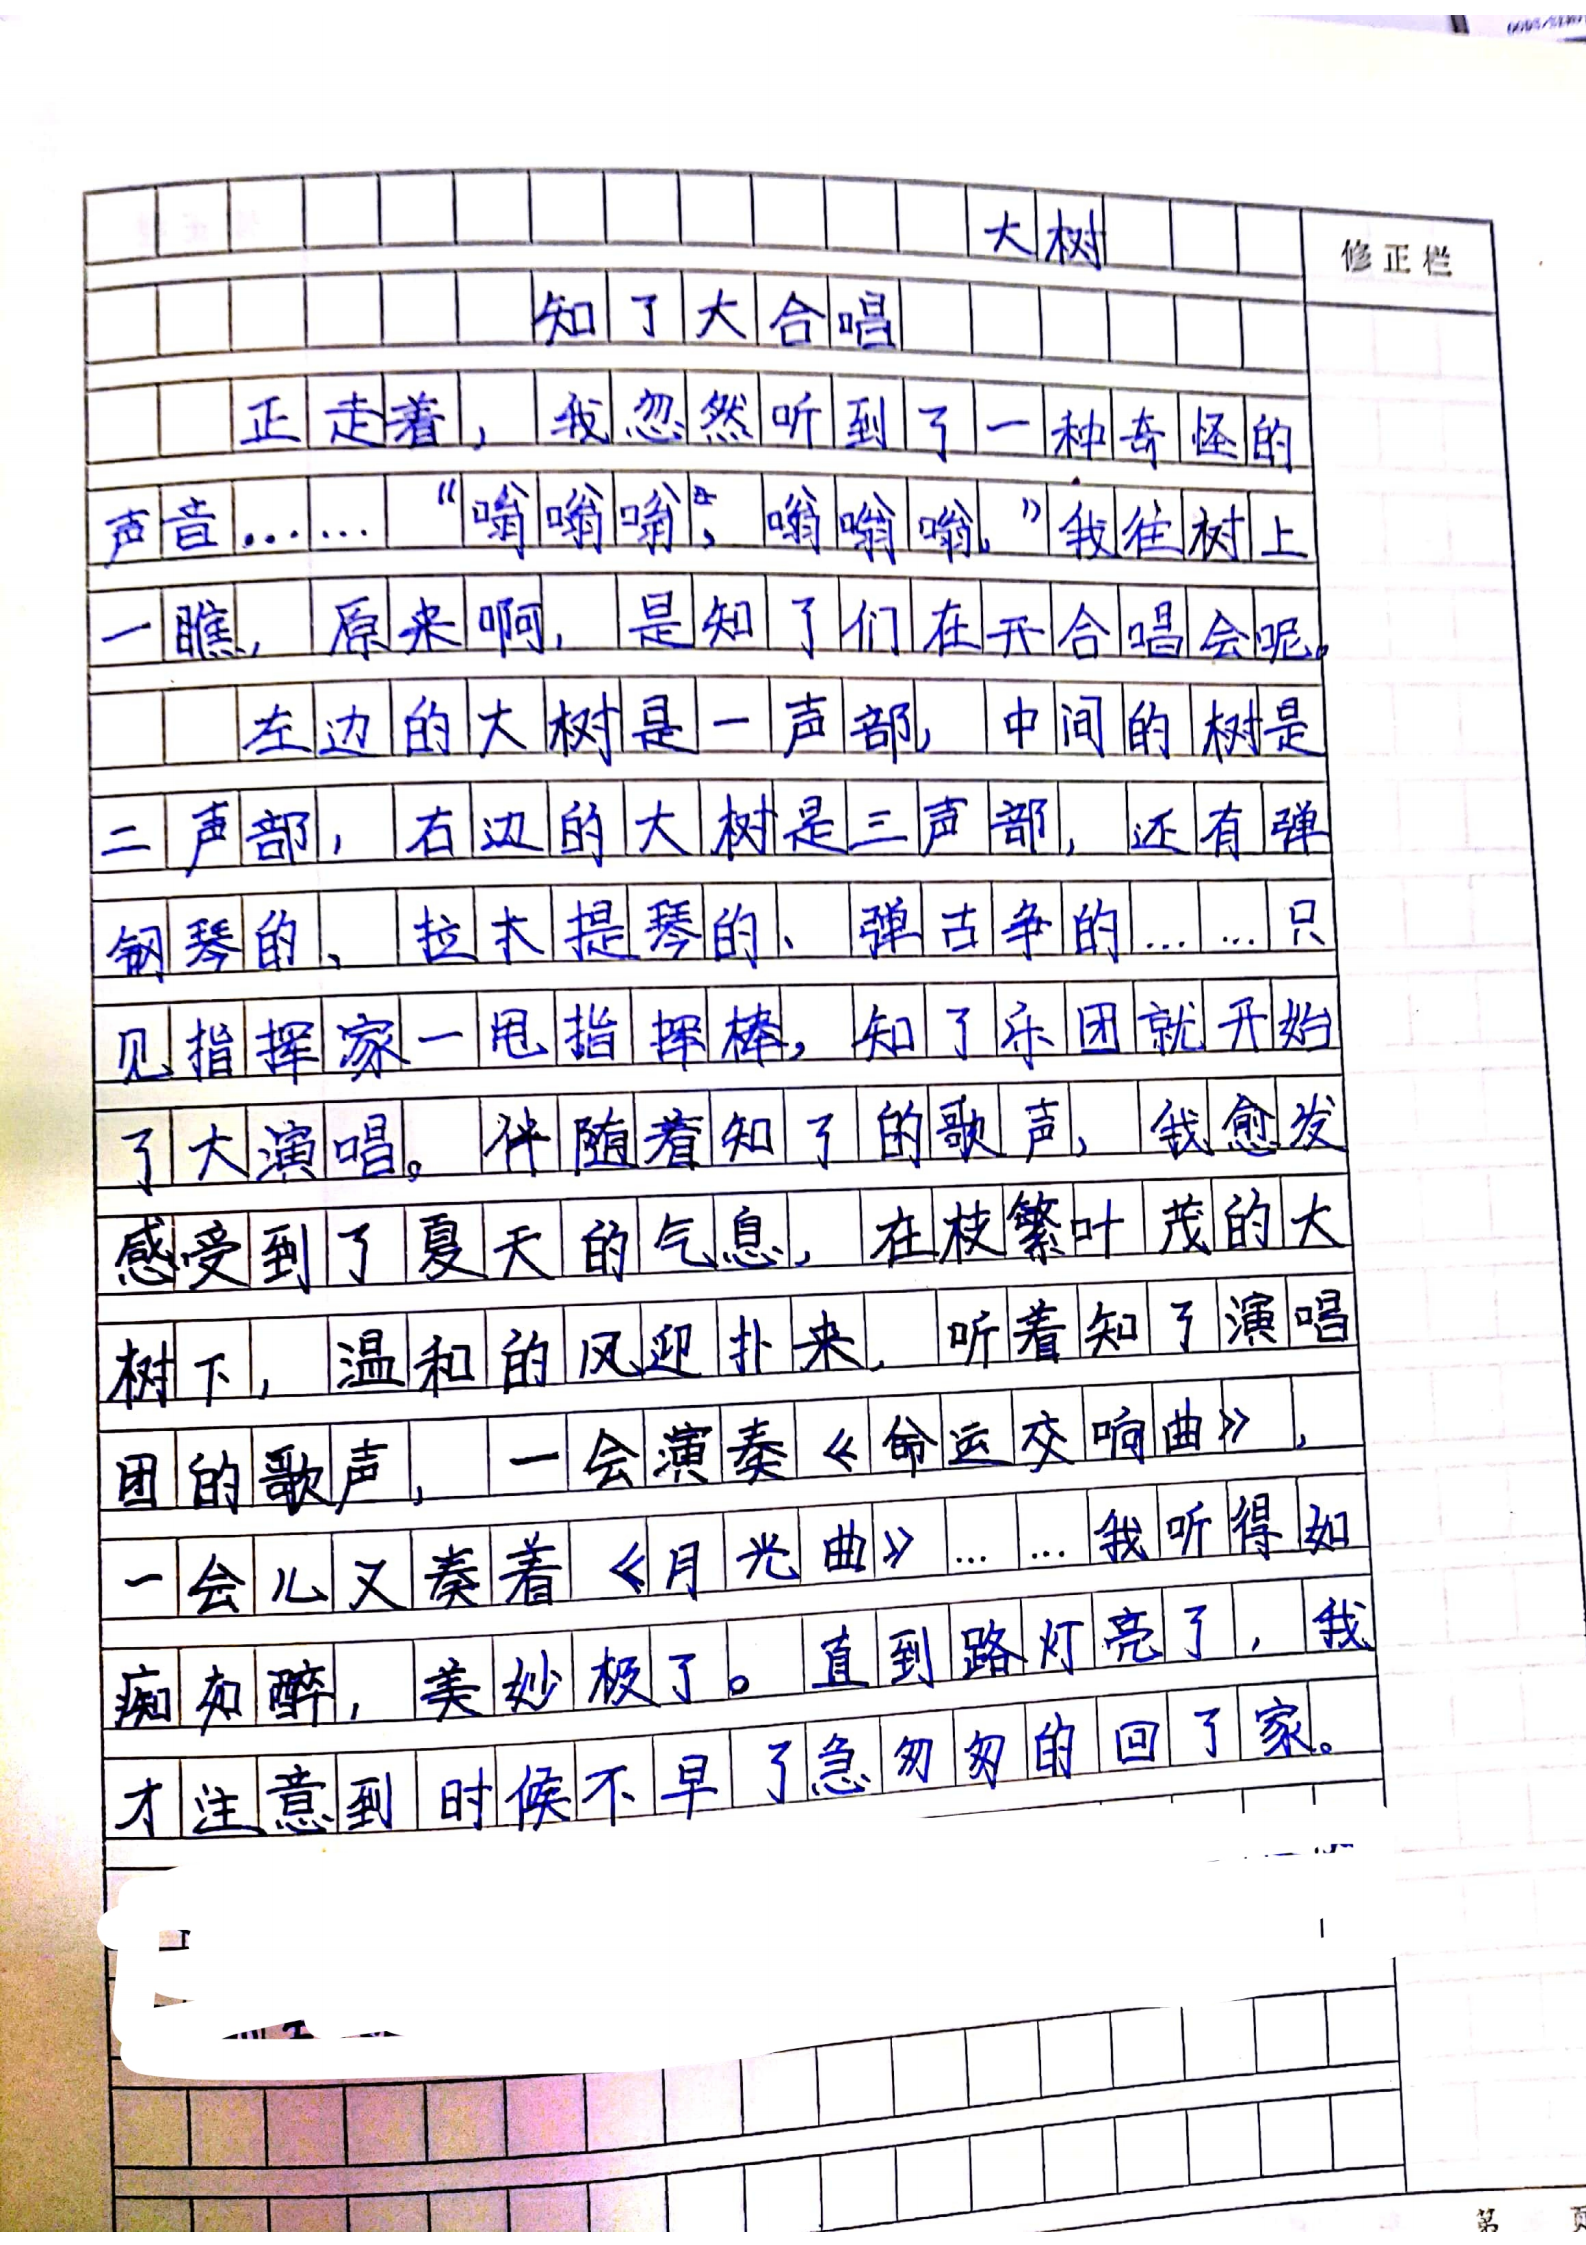 大树
修正栏
知了大合唱
正走着，我忽然听到了一种奇怪的
声音……“嗡嗡嗡，嗡嗡嗡。”我往树上
一瞧，原来啊，是知了们在开合唱会呢。
左边的大树是一声部，中间的树是
二声部，右边的大树是三声部，还有弹
钢琴的、拉大提琴的、弹古争的……只
见指挥家一甩指挥棒，知了乐团就开始
了大演唱。伴随着知了的歌声，我愈发
感受到了夏天的气息，在枝繁叶茂的大
树下，温和的风迎扑来，听着知了演唱
团的歌声，一会演奏《命运交响曲》，
一会儿又奏着《月光曲》……我听得如
痴如醉，美妙极了。直到路灯亮了，我
才注意到时候不早了急匆匆的回了家。
第 页